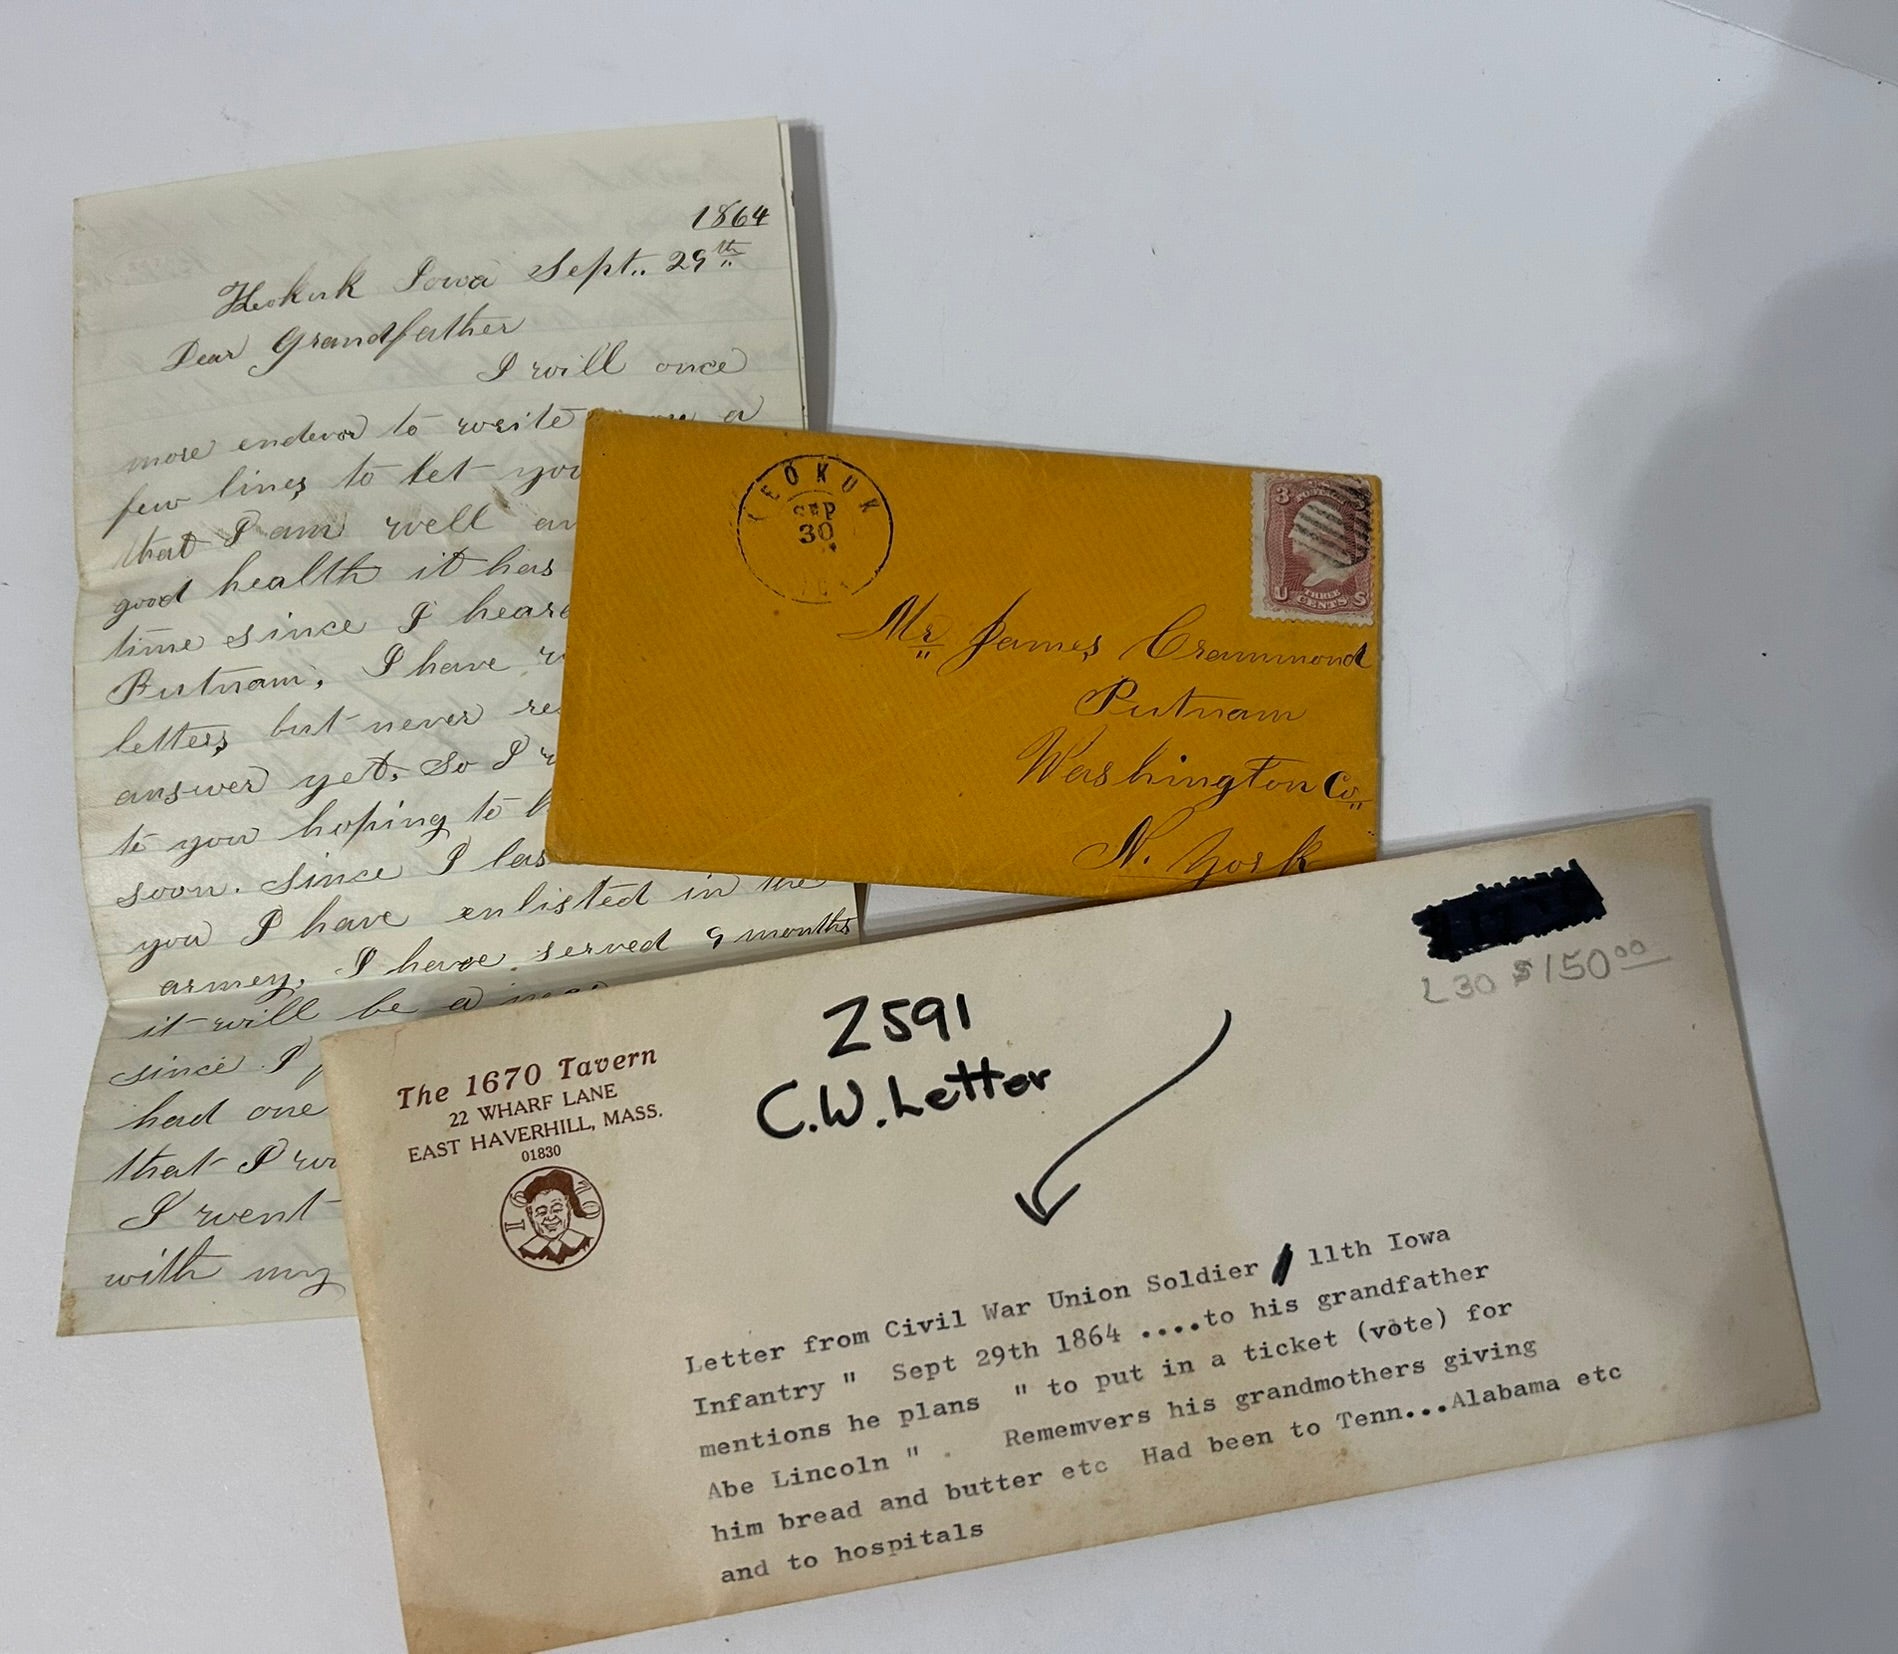 1864
Keokuk Iowa Sept.. 29th
Dear Grandfather
I will once
more endevor to write a
few lines to let you
that I am well
good health it has
time since I heard
Putnam, I have
letters but never
answer yet. So I
to you hoping to
soon. Since I las
you I have enlisted in the
armey, I have served 9 months
it will be a
since I
had one
that I
I went
with my
KEOKUK
SEP
30
3 3
U THREE S
CENTS
Mr James Crammond
Putnam
Washington Co
N. York
The 1670 Tavern
22 WHARF LANE
EAST HAVERHILL, MASS.
01830
1670
Z591
C.W. Letter
L30 $150 00
Letter from Civil War Union Soldier 11th Iowa
Infantry " Sept 29th 1864 ....to his grandfather
mentions he plans " to put in a ticket (vote) for
Abe Lincoln " . Rememvers his grandmothers giving
him bread and butter etc Had been to Tenn...Alabama etc
and to hospitals